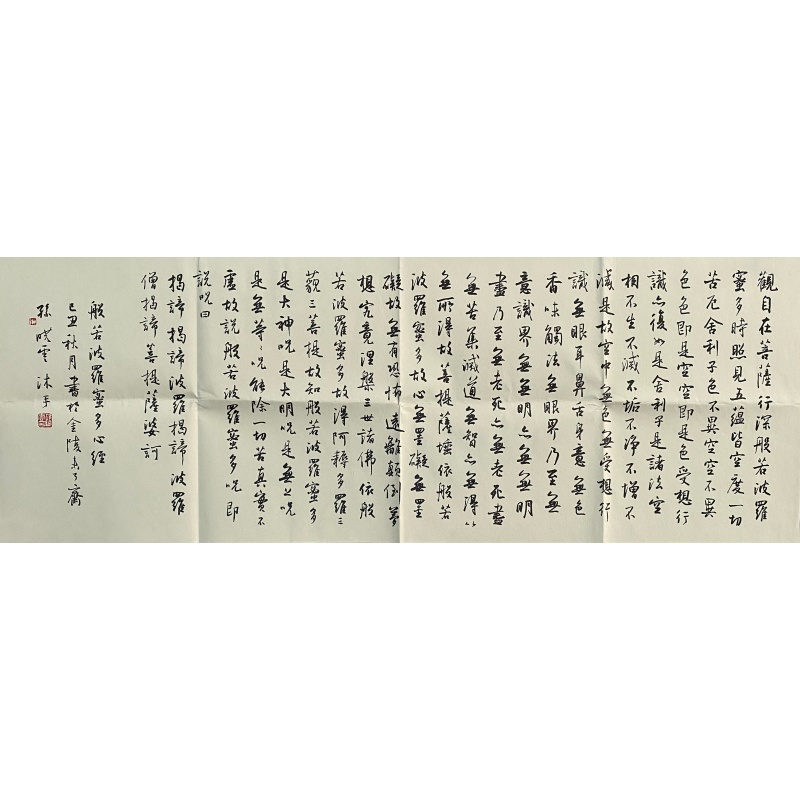 觀自在菩薩行深般若波羅
蜜多時照見五蘊皆空度一切
苦厄舍利子色不異空空不異
色色即是空空即是色受想行
識亦復如是舍利子是諸法空
相不生不滅不垢不淨不增不
減是故空中無色無受想行
識無眼耳鼻舌身意無色
香味觸法無眼界乃至無
意識界無無明亦無無明
盡乃至無老死亦無老死盡
無苦集滅道無智亦無得以
無所得故菩提薩埵依般若
波羅蜜多故心無罣礙無罣
礙故無有恐怖遠離顛倒夢
想究竟涅槃三世諸佛依般
若波羅蜜多故得阿耨多羅三
藐三菩提故知般若波羅蜜多
是大神咒是大明咒是無上咒
是無等々咒能除一切苦真實不
虛故說般若波羅蜜多咒即
說咒曰
揭諦揭諦波羅揭諦波羅
僧揭諦菩提薩婆訶
般若波羅蜜多心經
己丑秋月書於金陵未了齋
孫曉雲沐手